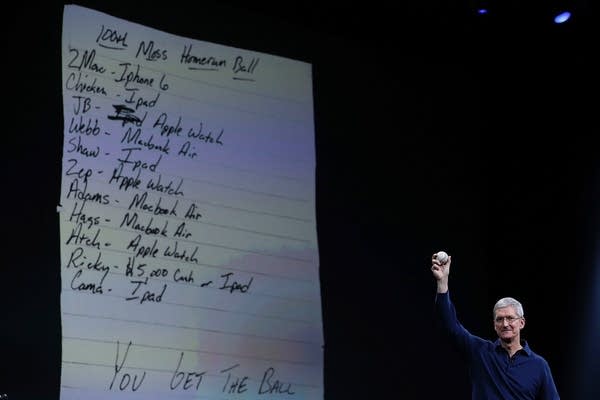 100th Moss Homerun Ball
2Mac - Iphone 6
Chicken - Ipad
JB - Apple Watch
Webb - Macbook Air
Shaw - Ipad
Zep - Apple Watch
Adams - Macbook Air
Hags - Macbook Air
Atch - Apple Watch
Ricky - $5,000 Cash or Ipad
Cama - Ipad
You get The Ball